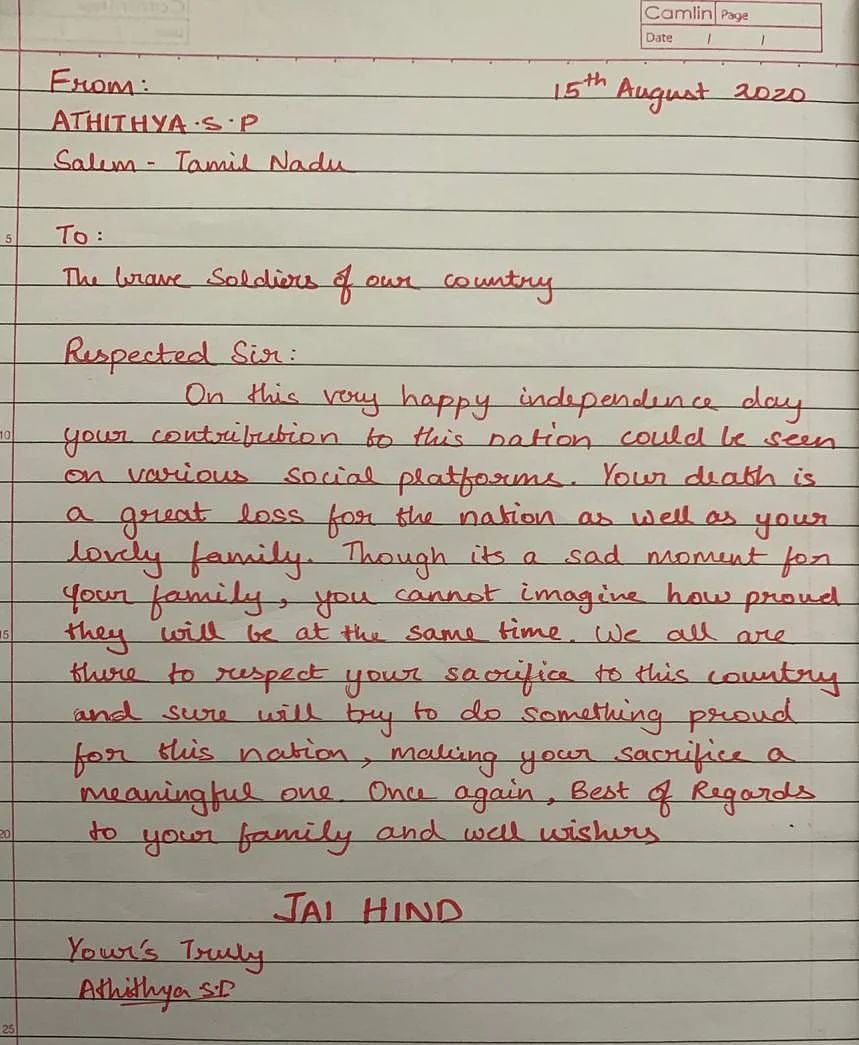 Camlin Page
Date / /
From:
15th August 2020
ATHITHYA.S.P
Salem - Tamil Nadu
5
To:
The brave Soldiers of our country
Respected Sir:
On this very happy independence day
10
your contribution to this nation could be seen
on various social platforms. Your death is
a great loss for the nation as well as your
lovely family. Though its a sad moment for
your family, you cannot imagine how proud
15
they will be at the same time. We all are
there to respect your sacrifice to this country
and sure will try to do something proud
for this nation, making your sacrifice a
meaningful one. Once again, Best of Regards
20
to your family and well wishers
JAI HIND
Your's Truly
Athithya S.P
25